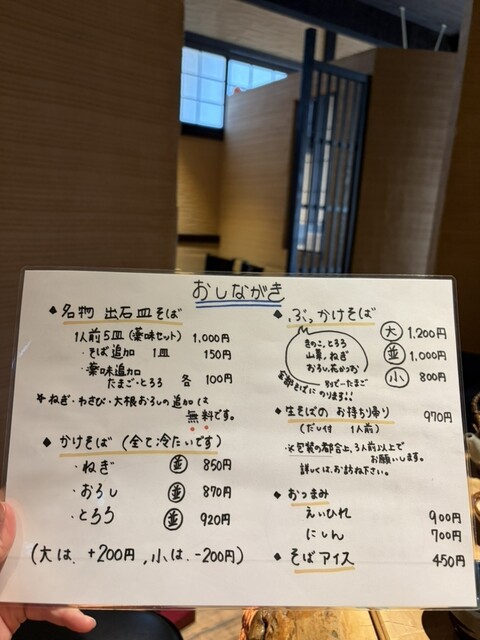 おしながき
◆ 名物 出石皿そば
1人前5皿(薬味セット) 1,000円
・そば追加 1皿 150円
・薬味追加
たまご・とろろ 各 100円
* ねぎ・わさび・大根おろしの追加は
無料です。
◆ かけそば (全て冷たいです)
・ねぎ 並 850円
・おろし 並 870円
・とろろ 並 920円
(大は、+200円, 小は、-200円)
◆ ぶっかけそば
きのこ、とろろ
山菜、ねぎ
おろし、花かつお
別ビーたまご
全部そばにのります!!
大 1,200円
並 1,000円
小 800円
◆ 生そばの お持ち帰り 970円
(だし付 1人前)
※包装の都合上、3人前以上で
お願いします。
詳しくは、お訪ね下さい。
◆ おつまみ
えいひれ 900円
にしん 700円
◆ そばアイス 450円